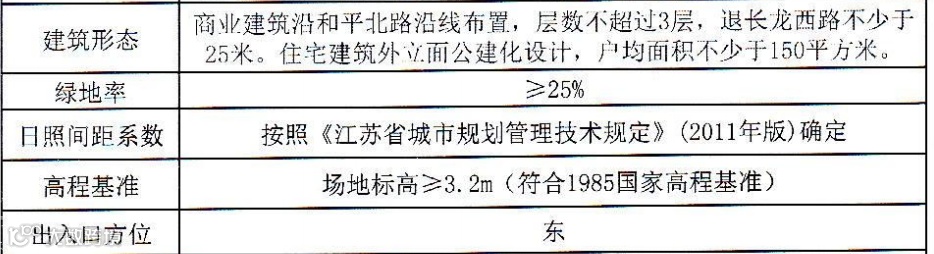 建筑形态
商业建筑沿和平北路沿线布置，层数不超过3层，退长龙西路不少于
25米。住宅建筑外立面公建化设计，户均面积不少于150平方米。
绿地率
≥25%
日照间距系数
按照《江苏省城市规划管理技术规定》(2011年版)确定
高程基准
场地标高≥3.2m（符合1985国家高程基准）
出入口方位
东